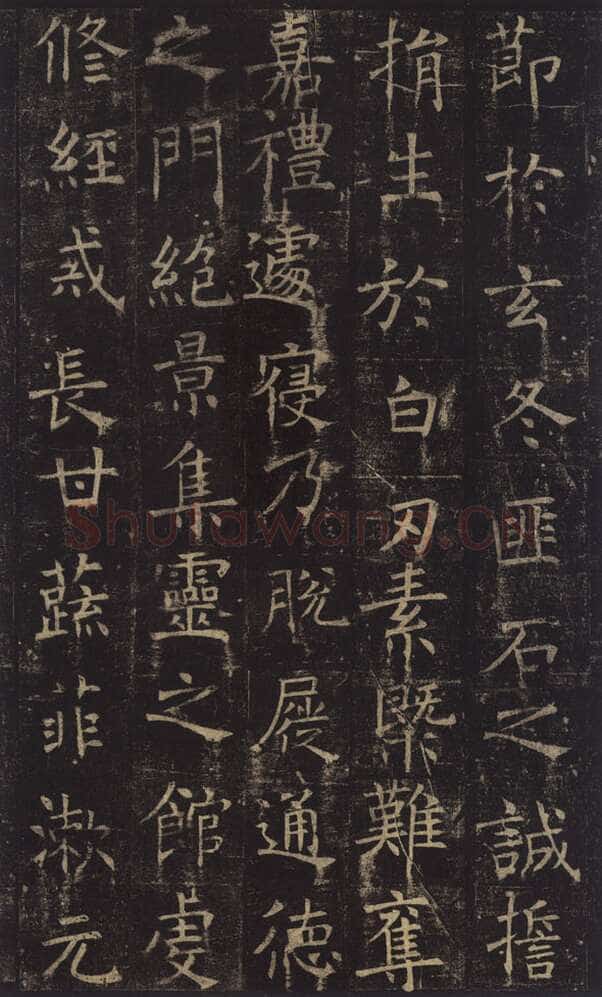 莭於玄冬匪石之誠擔
捐生於白刃素槩難奪
嘉禮遽寢乃脫屣通德
之門絕景集靈之館虔
修經戒長甘蔬菲漱元
Shufawang.cn